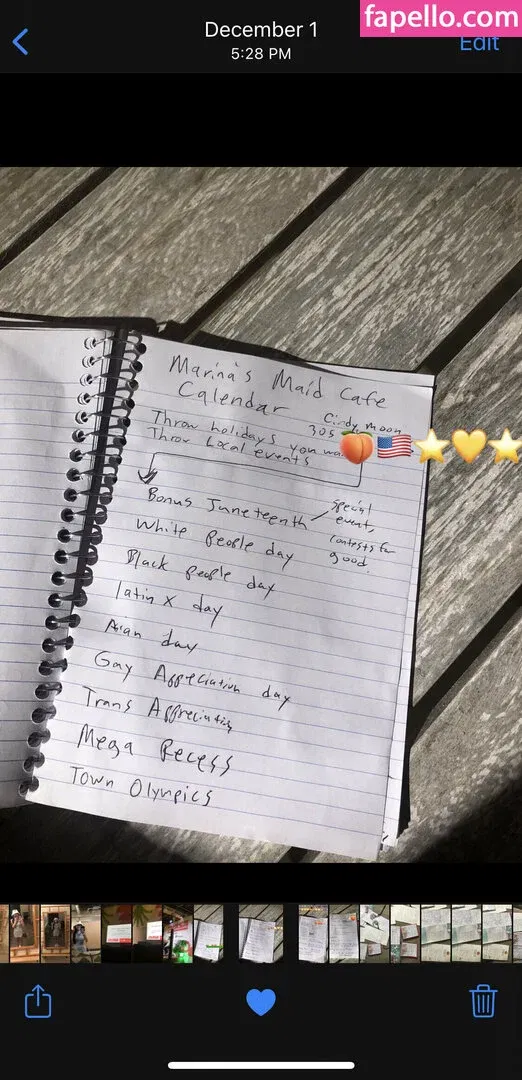 December 1
5:28 PM
fapello.com
Edit
Marina's Maid Cafe
Calendar
Cindy Moon
305
Throw holidays you
Throw Local events
Bonus Juneteenth
special
event,
contests for
good
White People day
Black people day
latin x day
Asian day
Gay Appreciation day
Trans Appreciation
Mega Recess
Town Olympics